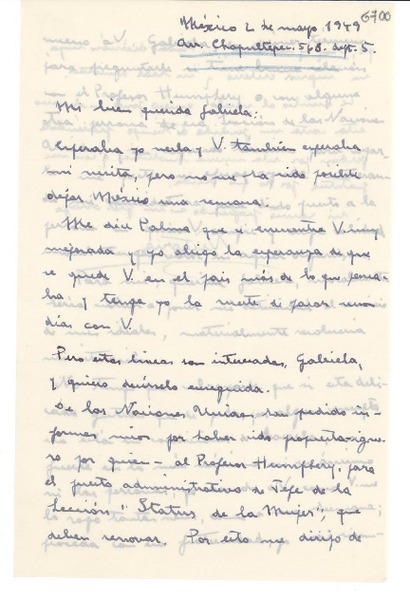 6700
México 2 de mayo 1949
Av. Chapultepec 568. dept. 5.
Mi bien querida Gabriela:
Esperaba yo verla y V. también esperaba
mi visita, pero no me ha sido posible
dejar México una semana.
Me dice Palma que se encuentra V. muy
mejorada y yo abrigo la esperanza de que
se quede V. en el país más de lo que pensa-
ba, y tenga yo la suerte de pasar unos
días con V.
Pero estas líneas son interesadas, Gabriela,
y quiero decírselo enseguida.
De las Naciones Unidas han pedido in-
formes míos por haber sido propuesta -igno-
ro por quien- al Profesor Humphery, para
el puesto administrativo de Jefe de la
Sección "Status de la Mujer", que
deben renovar. Por esto me dirijo de